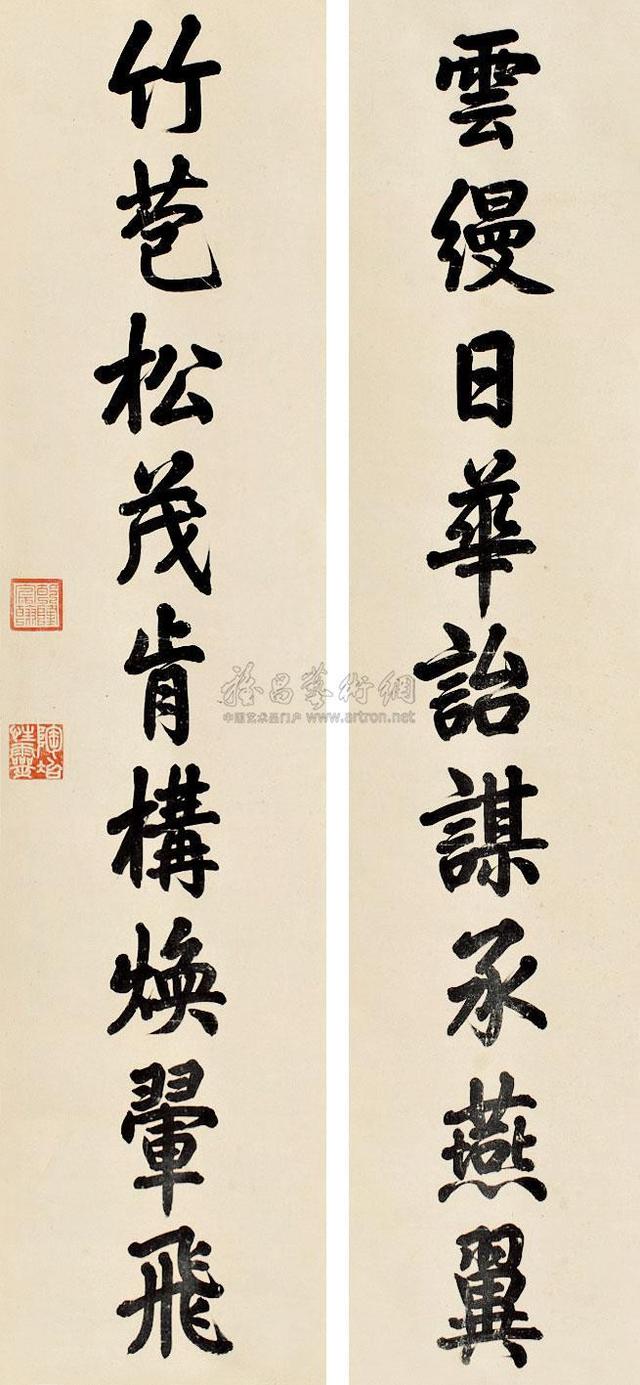 雲縵日華詒謀承燕翼
竹苞松茂肯構煥翬飛
陶冶性靈
中国艺术品门户 www.artron.net